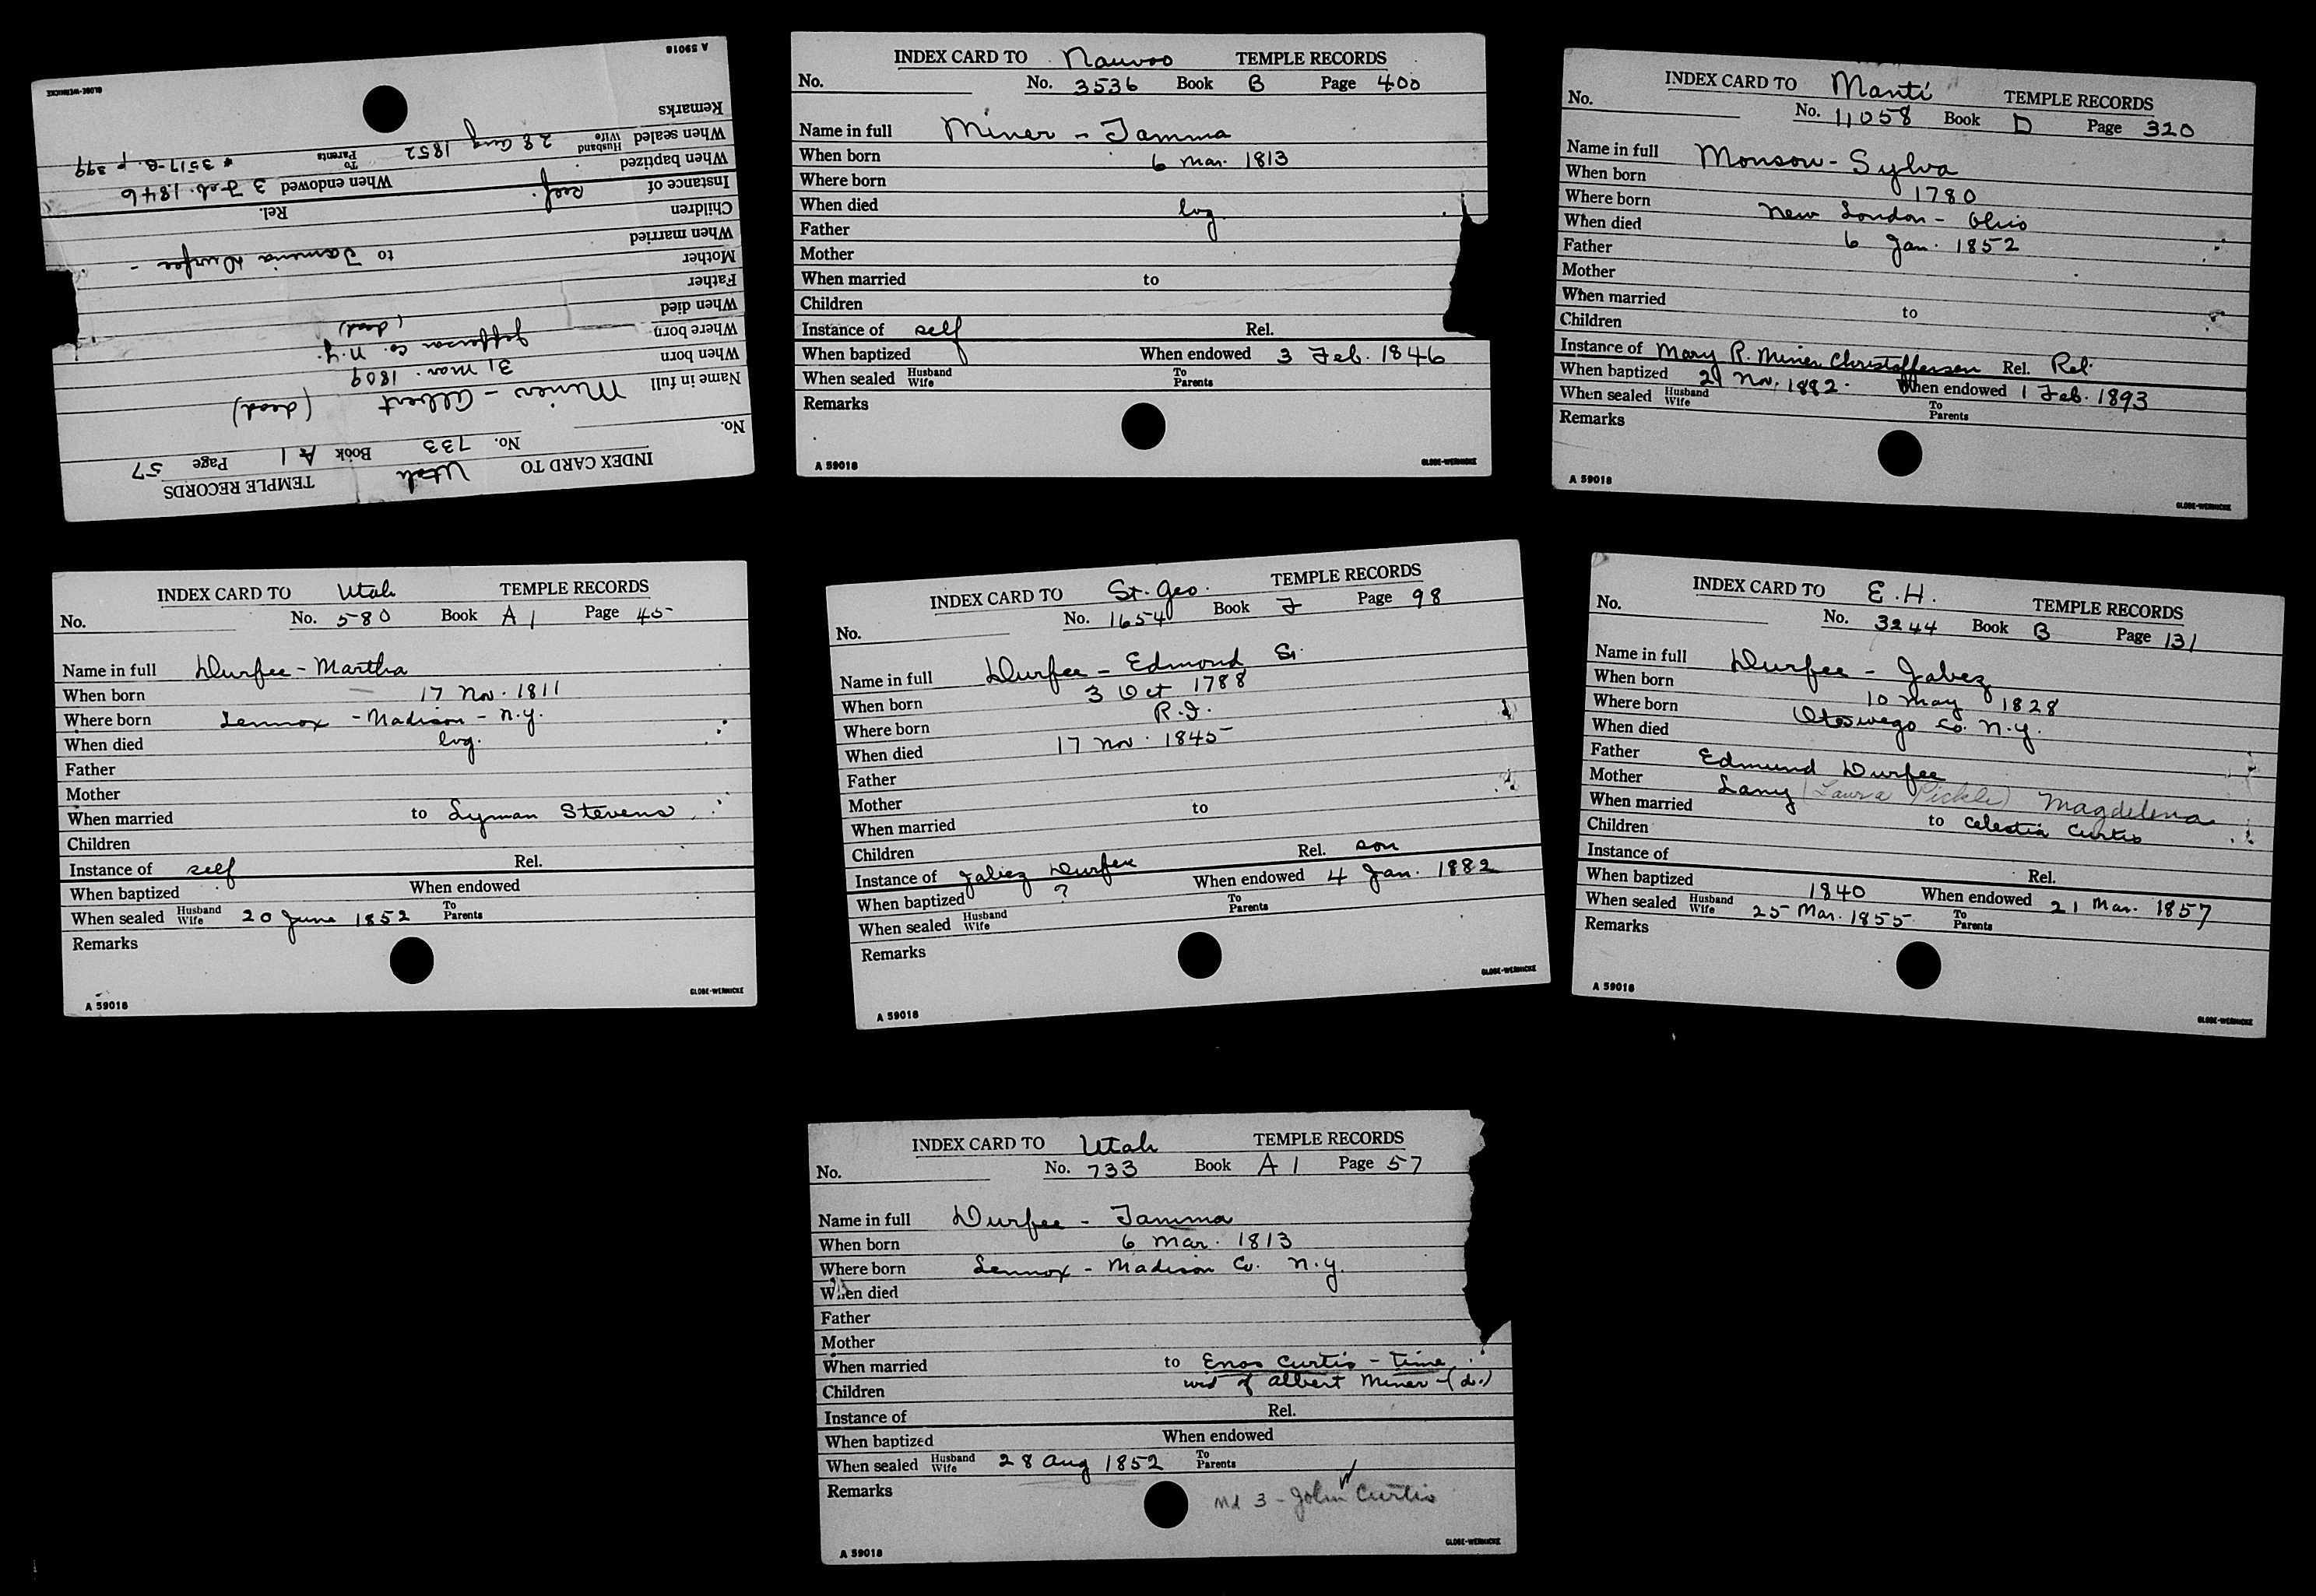 INDEX CARD TO Utah TEMPLE RECORDS
No. No. 733 Book A1 Page 57
Name in full Miner - Albert (dead)
When born 31 Mar. 1809
Where born Jefferson Co. N.Y.
When died (dead)
Father
Mother
When married to Tamma Durfee -
Children
Instance of Rel.
When baptized When endowed 3 Feb. 1846
When sealed Husband Wife 28 Aug 1852 To Parents # 3517-B. p 399
Remarks
GLOBE-WERNICKE
A 59018
INDEX CARD TO Nauvoo TEMPLE RECORDS
No. No. 3536 Book B Page 400
Name in full Miner - Tamma
When born 6 Mar. 1813
Where born
When died lvg
Father
Mother
When married to
Children
Instance of self Rel.
When baptized When endowed 3 Feb. 1846
When sealed Husband Wife To Parents
Remarks
A 59018 GLOBE-WERNICKE
INDEX CARD TO Manti TEMPLE RECORDS
No. No. 11058 Book D Page 320
Name in full Monson - Sylva
When born 1780
Where born New London - Ohio
When died 6 Jan. 1852
Father
Mother
When married to
Children
Instance of Mary R. Miner Christoffersen Rel. Rel.
When baptized 21 Nov. 1882. When endowed 1 Feb. 1893
When sealed Husband Wife To Parents
Remarks
A 59018 GLOBE-WERNICKE
INDEX CARD TO Utah TEMPLE RECORDS
No. No. 580 Book A1 Page 45
Name in full Durfee - Martha
When born 17 Nov. 1811
Where born Lennox - Madison - N.Y.
When died lvg.
Father
Mother
When married to Lyman Stevens
Children
Instance of self Rel.
When baptized When endowed
When sealed Husband Wife 20 June 1852 To Parents
Remarks
A 59018 GLOBE-WERNICKE
INDEX CARD TO St. Geo. TEMPLE RECORDS
No. No. 1654 Book F Page 98
Name in full Durfee - Edmond Sr.
When born 3 Oct 1788
Where born R.I.
When died 17 Nov. 1845
Father
Mother
When married to
Children
Instance of Jabez Durfee Rel. son
When baptized ? When endowed 4 Jan. 1882
When sealed Husband Wife To Parents
Remarks
A 59018 GLOBE-WERNICKE
INDEX CARD TO E.H. TEMPLE RECORDS
No. No. 3244 Book B Page 131
Name in full Durfee - Jabez
When born 10 May 1828
Where born Otswego Co. N.Y.
When died
Father Edmund Durfee
Mother Lany (Laura Pickle) Magdelena
When married to Celestia Curtis
Children
Instance of Rel.
When baptized 1840 When endowed 21 Mar. 1857
When sealed Husband Wife 25 Mar. 1855 To Parents
Remarks
A 59018 GLOBE-WERNICKE
INDEX CARD TO Utah TEMPLE RECORDS
No. No. 733 Book A1 Page 57
Name in full Durfee - Tamma
When born 6 Mar. 1813
Where born Lennox - Madison Co. N.Y.
When died
Father
Mother
When married to Enos Curtis - time
Children wid of Albert Miner - (d.)
Instance of Rel.
When baptized When endowed
When sealed Husband Wife 28 Aug 1852 To Parents
Remarks Md 3 - John Curtis
A 59018 GLOBE-WERNICKE